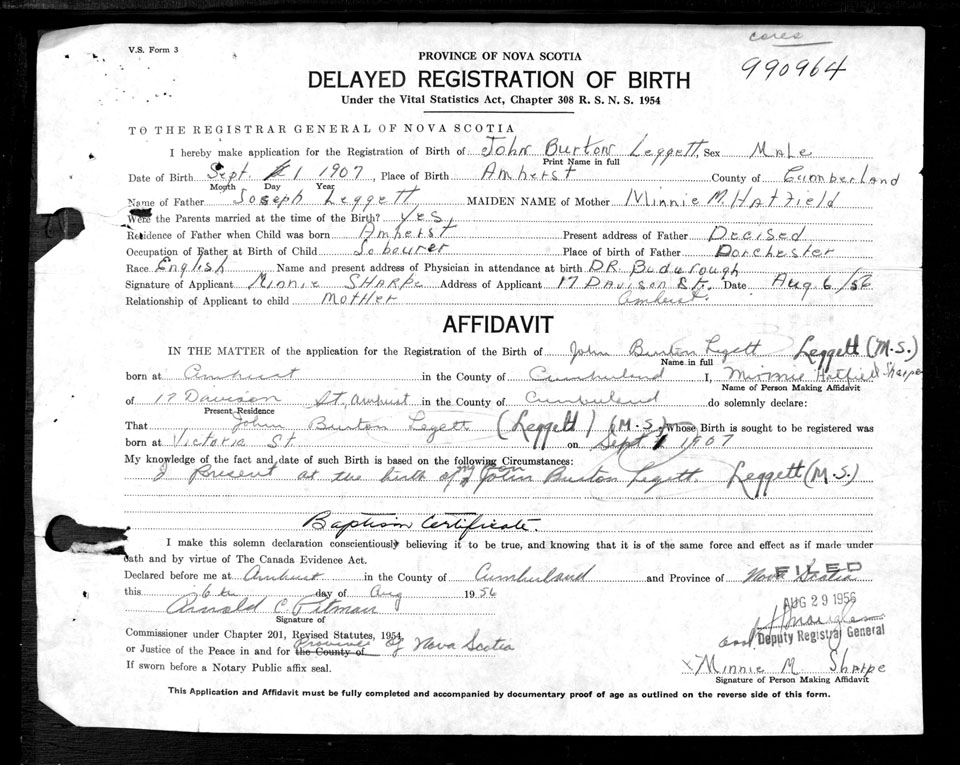 V.S. Form 3
cores
990964
PROVINCE OF NOVA SCOTIA
DELAYED REGISTRATION OF BIRTH
Under the Vital Statistics Act, Chapter 308 R. S. N. S. 1954
TO THE REGISTRAR GENERAL OF NOVA SCOTIA
I hereby make application for the Registration of Birth of John Burton Leggett, Sex Male
Print Name in full
Date of Birth Sept. 1 1907, Place of Birth Amherst County of Cumberland
Month Day Year
Name of Father Joseph Leggett, MAIDEN NAME of Mother Minnie M. Hatfield
Were the Parents married at the time of the Birth? Yes,
Residence of Father when Child was born Amherst Present address of Father Decised
Occupation of Father at Birth of Child Labourer Place of birth of Father Dorchester
Race English Name and present address of Physician in attendance at birth DR.
Signature of Applicant Minnie Sharpe Address of Applicant 17 Davison St. Date Aug. 6/56
Amherst.
Relationship of Applicant to child Mother
AFFIDAVIT
IN THE MATTER of the application for the Registration of the Birth of John Burton Legett Leggett (M.S.)
Name in full
born at Amherst in the County of Cumberland I, Minnie Hatfield Sharpe
Name of Person Making Affidavit
of 17 Davison St, Amherst in the County of Cumberland do solemnly declare:
Present Residence
That John Burton Legett (Leggett) (M.S.) whose Birth is sought to be registered was
born at Victoria St. on Sept 1 1907
My knowledge of the fact and date of such Birth is based on the following Circumstances:
I present at the birth of my son John Burton Legett. Leggett (M.S.)
Baptism Certificate.
I make this solemn declaration conscientiously believing it to be true, and knowing that it is of the same force and effect as if made under
oath and by virtue of The Canada Evidence Act.
Declared before me at Amherst in the County of Cumberland and Province of Nova Scotia
FILED
this 6th day of Aug 1956
AUG 29 1956
Arnold C. Pitman
Signature of
Asst. Deputy Registrar General
Commissioner under Chapter 201, Revised Statutes, 1954,
or Justice of the Peace in and for the County of Province of Nova Scotia
If sworn before a Notary Public affix seal.
x Minnie M. Sharpe
Signature of Person Making Affidavit
This Application and Affidavit must be fully completed and accompanied by documentary proof of age as outlined on the reverse side of this form.